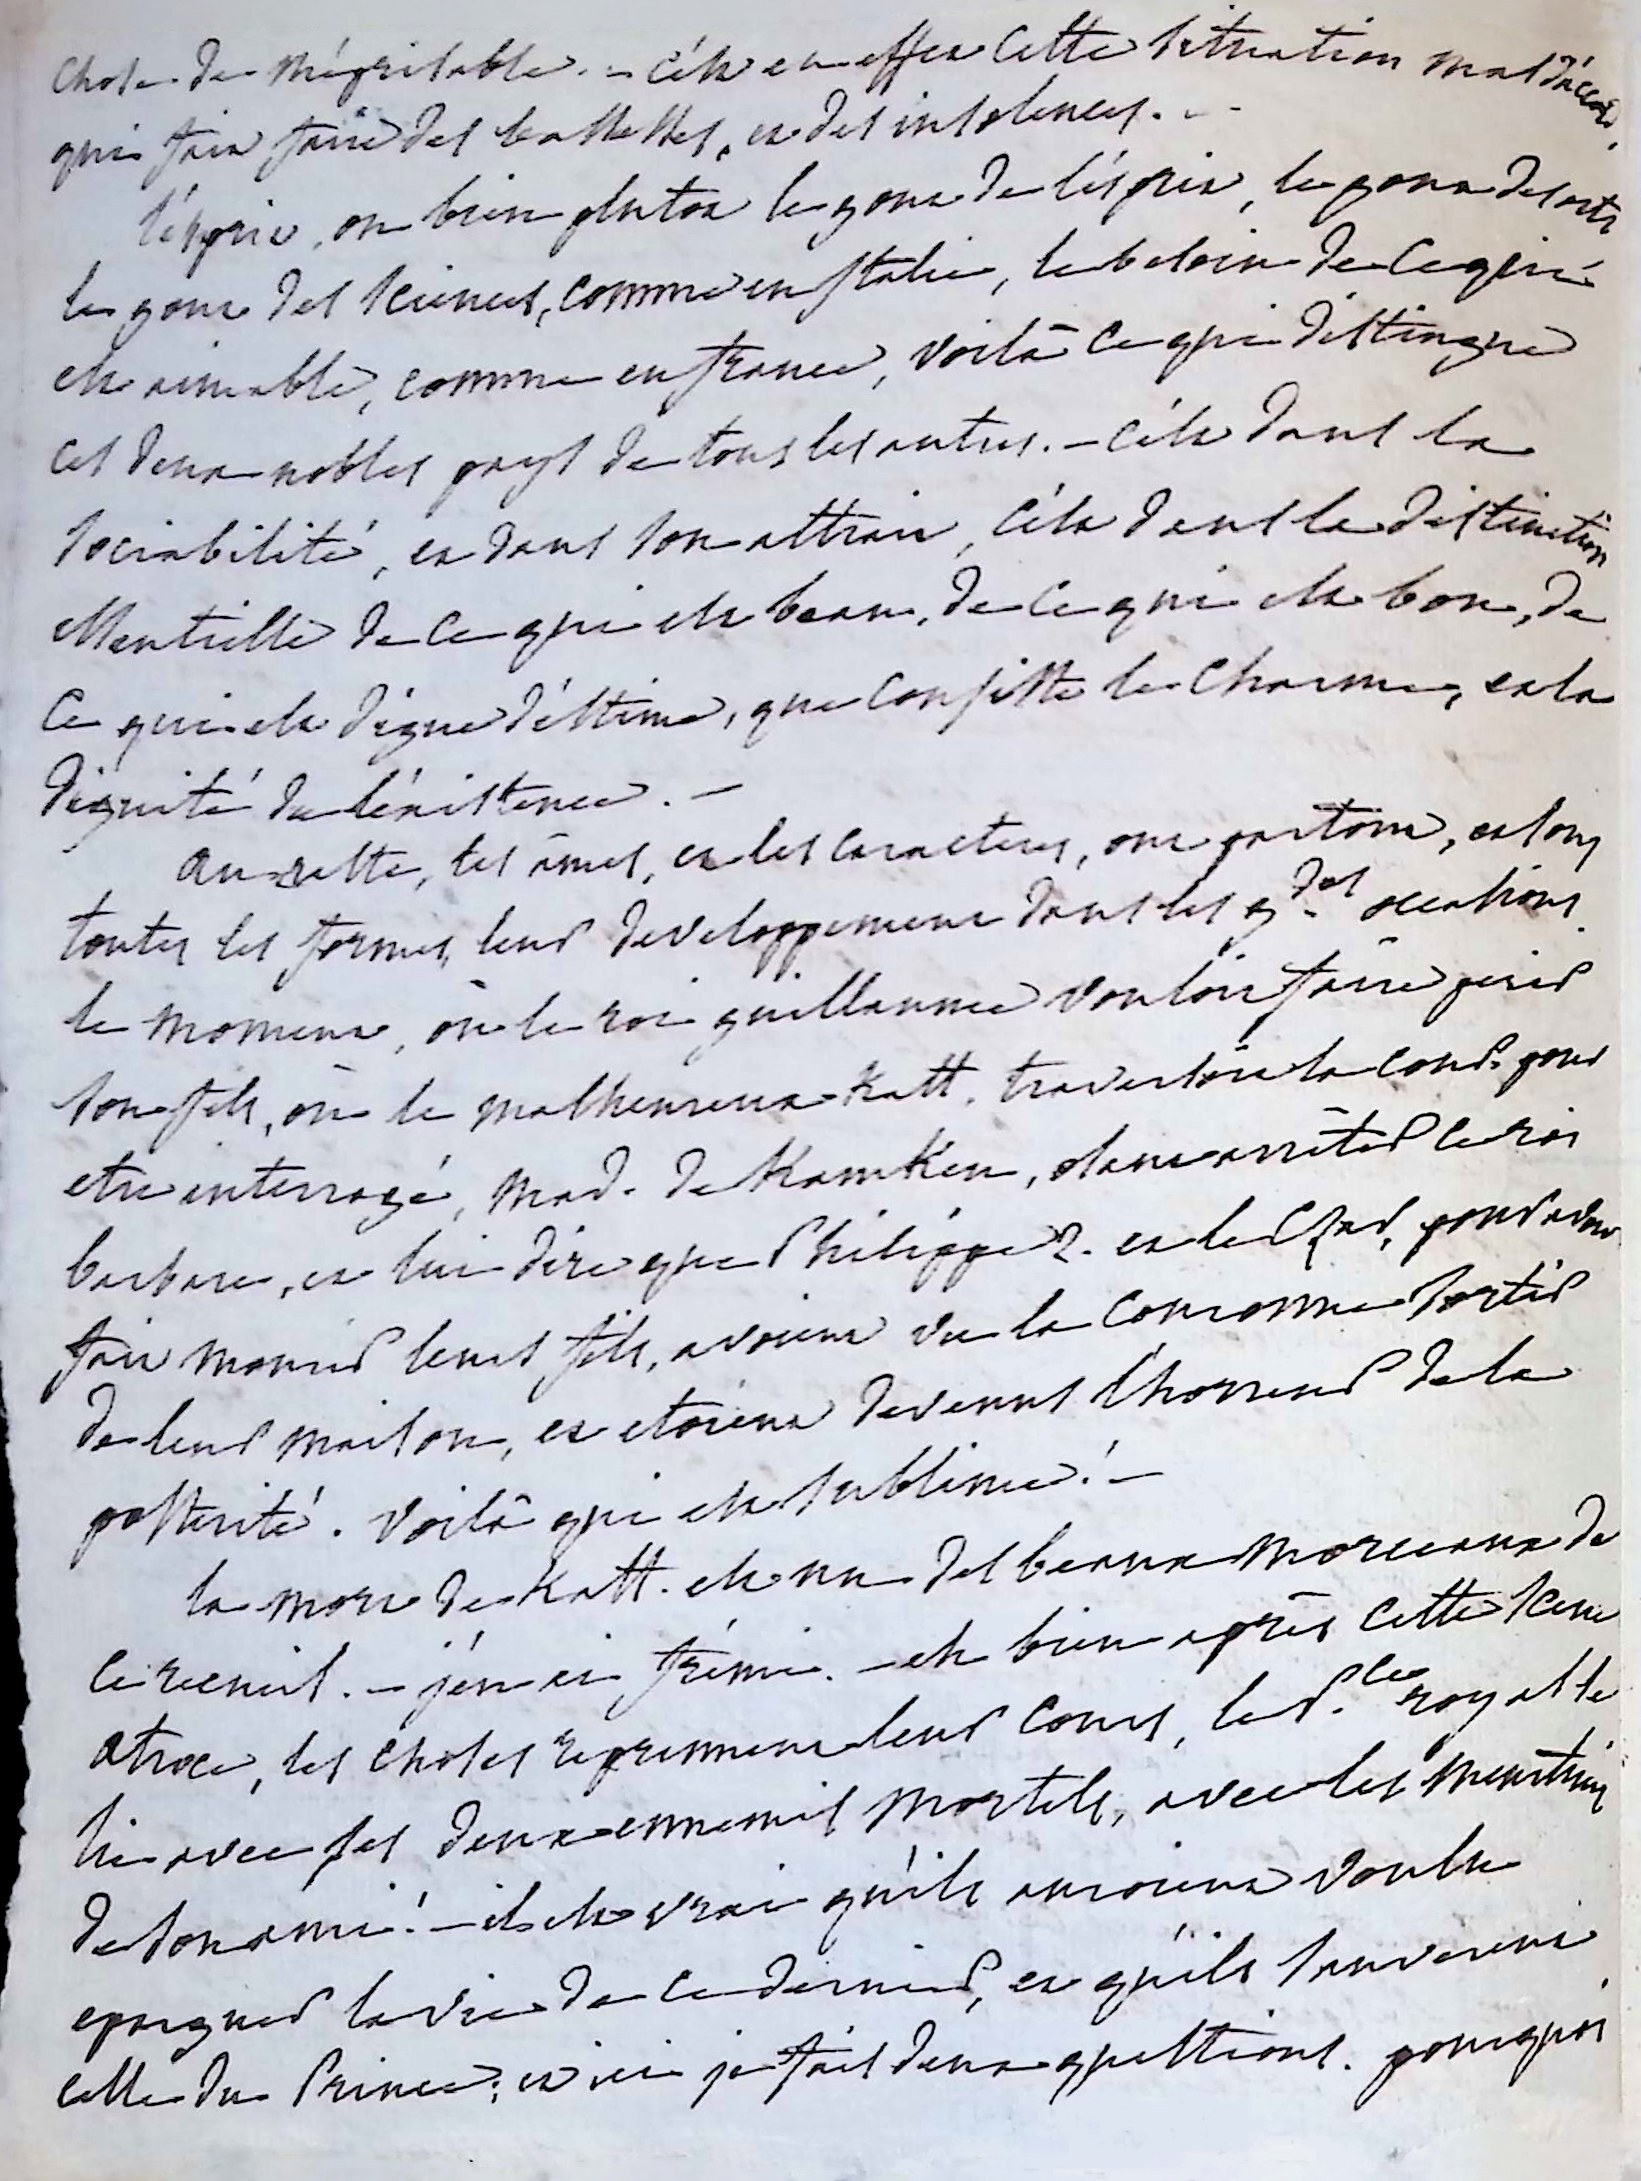 chose de méprisable. – c'ést en effet cette situation mal d'accord,
qui fait faire des bassesses, et des insolences. –
l'ésprit, ou bien plutot le gout de l'ésprit, le gout des arts
le gout des sciences, comme en Italie, le besoin de ce qui
est aimable, comme en france, voilà ce qui distingue
ces deux nobles pays de tous les autres. – c'ést dans la
sociabilité, et dans son attrait, c'ést dans la distinction
essentielle de ce qui est beau, de ce qui est bon, de
ce qui est digne d'éstime, que consiste le charme, et la
dignité de l'éxistence. –
au reste, les âmes, et les caracteres, ont partout, et sous
toutes les formes, leur developpement dans les g.des occasions.
le moment, où le roi guillaume vouloit faire perir
son fils, où le malheureux Katt. traversoit la cour pour
etre interrogé, Mad. de KamKen, osant arrêter ce roi
barbare, et lui dire que Philippe 2. et le Czar, pour avoir
fait mourir leurs fils, avoient vu la couronne sortir
de leur maison, et etoient devenus l'horreur de la
posterité. voilà qui est sublime! –
la mort de Katt. est un des beaux morceaux de
ce recueil. – j'én ai frémi. – eh bien après cette scene
atroce, les choses reprennent leur cours, le P.ce royal se
lie avec ses deux ennemis mortels, avec les meurtriers
de son ami! – il est vrai qu'ils auroient voulu
epargner la vie de ce dernier, et qu'ils sauverent
celle du Prince; et ici je fais deux questions. pourquoi